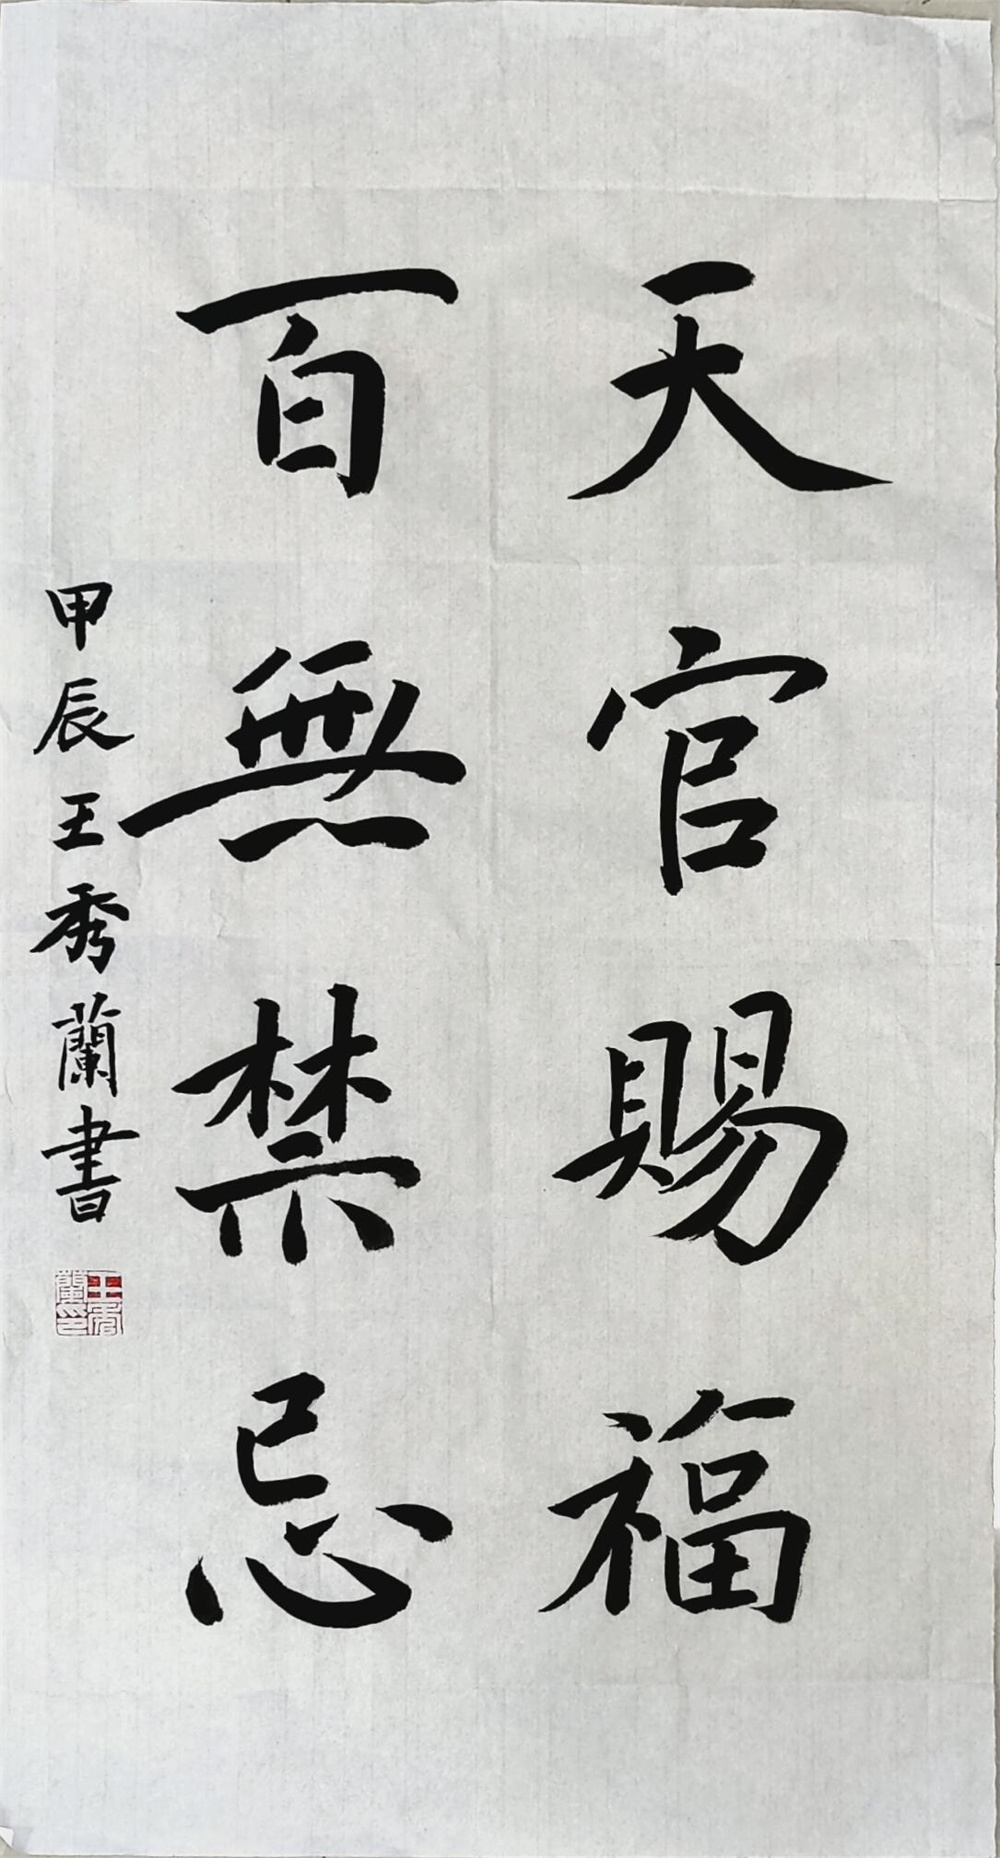 天官賜福
百無禁忌
甲辰王秀蘭書
王秀蘭印